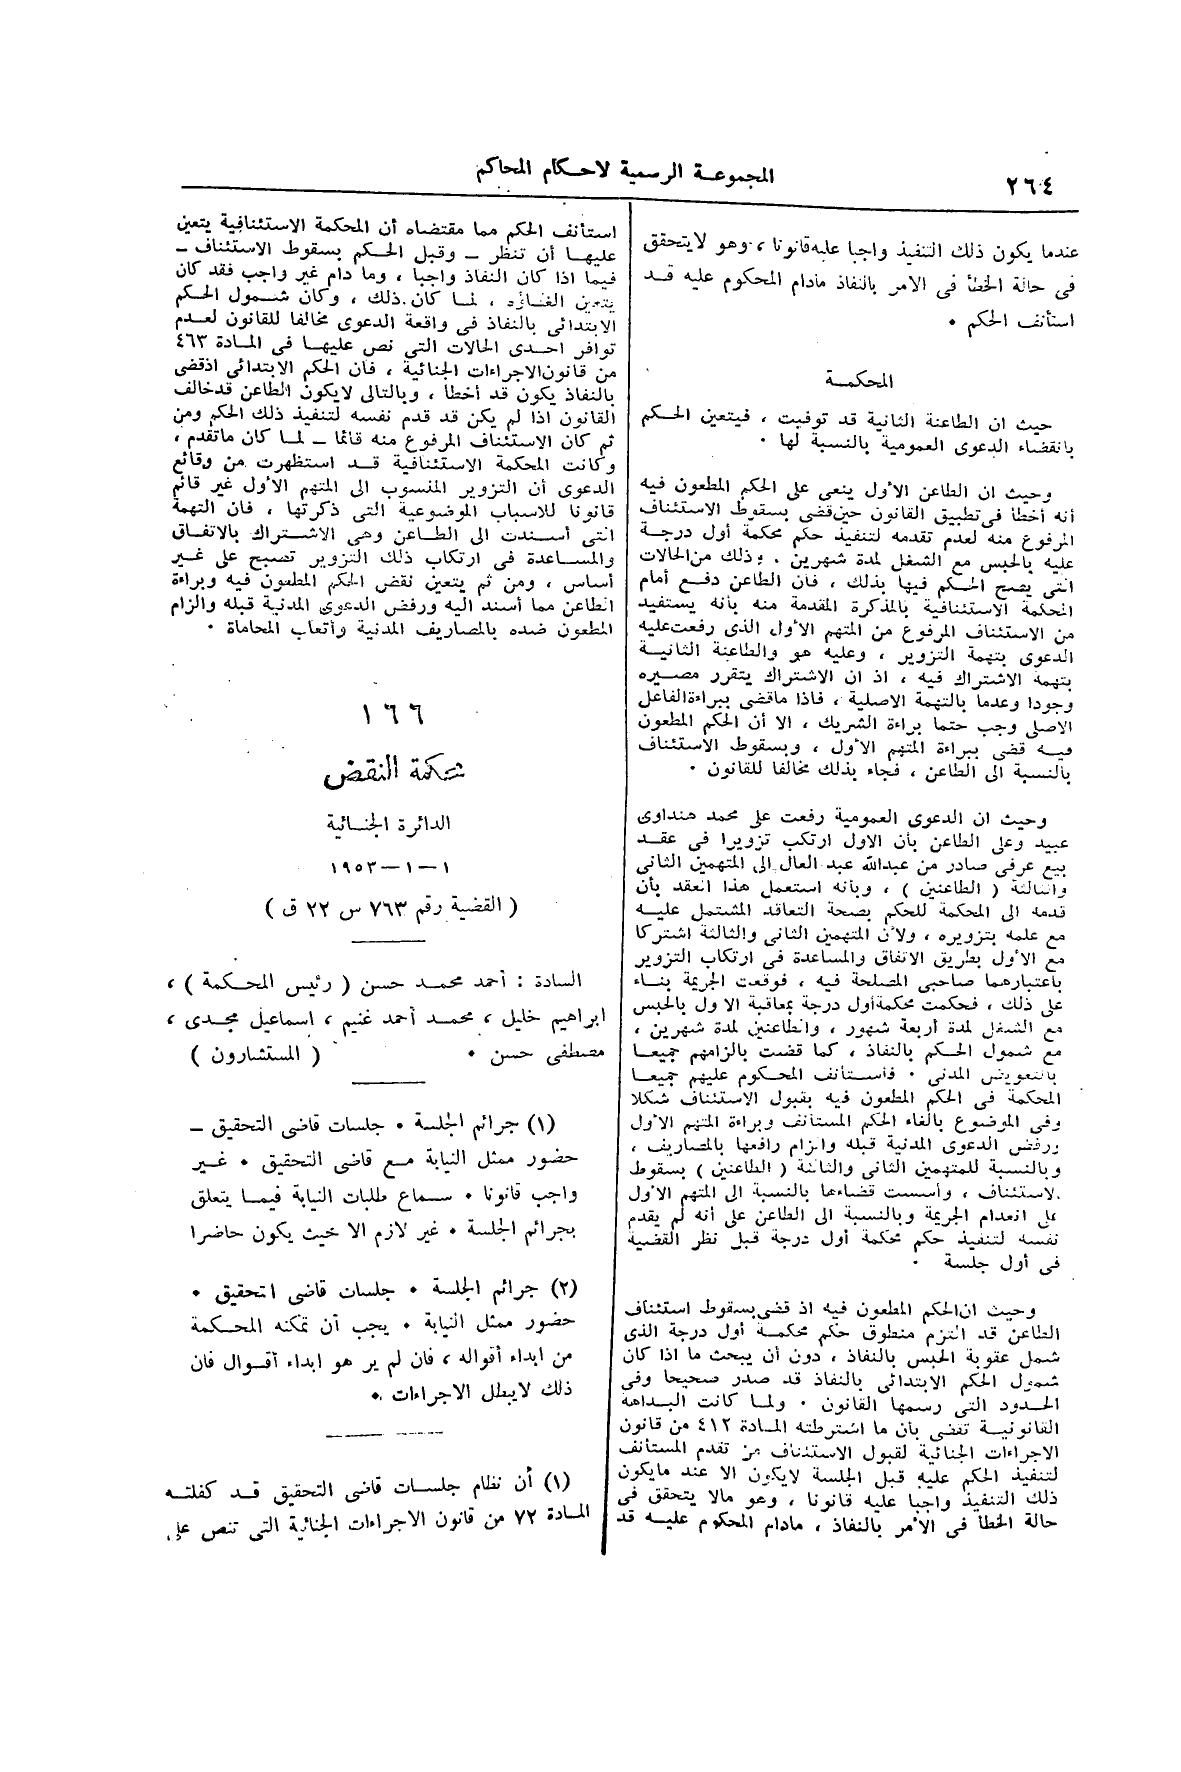 ٢٦٤
المجموعة الرسمية لاحكام المحاكم
عندما يكون ذلك التنفيذ واجبا عليه قانونا ، وهو لايتحقق
فى حالة الخطأ فى الامر بالنفاذ مادام المحكوم عليه قد
استأنف الحكم •
المحكمة
حيث ان الطاعنة الثانية قد توفيت ، فيتعين الحكم
بانقضاء الدعوى العمومية بالنسبة لها •
وحيث ان الطاعن الأول ينعى على الحكم المطعون فيه
أنه أخطأ فى تطبيق القانون حين قضى بسقوط الاستئناف
المرفوع منه لعدم تقدمه لتنفيذ حكم محكمة أول درجة
عليه بالحبس مع الشغل لمدة شهرين . وذلك من الحالات
التى يصح الحكم فيها بذلك ، فان الطاعن دفع أمام
المحكمة الاستئنافية بالمذكرة المقدمة منه بأنه يستفيد
من الاستئناف المرفوع من المتهم الأول الذى رفعت عليه
الدعوى بتهمة التزوير ، وعليه هو والطاعنة الثانية
بتهمة الاشتراك فيه ، اذ ان الاشتراك يتقرر مصيره
وجودا وعدما بالتهمة الاصلية ، فاذا ماقضى ببراءة الفاعل
الاصلى وجب حتما براءة الشريك ، الا أن الحكم المطعون
فيه قضى ببراءة المتهم الأول ، وبسقوط الاستئناف
بالنسبة الى الطاعن ، فجاء بذلك مخالفا للقانون •
وحيث ان الدعوى العمومية رفعت على محمد هنداوى
عبيد وعلى الطاعن بأن الاول ارتكب تزويرا فى عقد
بيع عرفى صادر من عبدالله عبد العال الى المتهمين الثانى
والثالثة ( الطاعنين ) ، وبأنه استعمل هذا العقد بأن
قدمه الى المحكمة للحكم بصحة التعاقد المشتمل عليه
مع علمه بتزويره ، ولأن المتهمين الثانى والثالثة اشتركا
مع الأول بطريق الاتفاق والمساعدة فى ارتكاب التزوير
باعتبارهما صاحبى المصلحة فيه ، فوقعت الجريمة بناء
على ذلك ، فحكمت محكمة أول درجة بمعاقبة الاول بالحبس
مع الشغل لمدة أربعة شهور ، والطاعنين لمدة شهرين ،
مع شمول الحكم بالنفاذ ، كما قضت بالزامهم جميعا
بالتعويض المدنى • فاستأنف المحكوم عليهم جميعا
المحكمة فى الحكم المطعون فيه بقبول الاستئناف شكلا
وفى الموضوع بالغاء الحكم المستأنف وبراءة المتهم الأول
ورفض الدعوى المدنية قبله والزام رافعها بالمصاريف ،
وبالنسبة للمتهمين الثانى والثالثة ( الطاعنين ) بسقوط
الاستئناف ، وأسست قضاءها بالنسبة الى المتهم الأول
على انعدام الجريمة وبالنسبة الى الطاعن على أنه لم يقدم
نفسه لتنفيذ حكم محكمة أول درجة قبل نظر القضية
فى أول جلسة •
وحيث ان الحكم المطعون فيه اذ قضى بسقوط استئناف
الطاعن قد التزم منطوق حكم محكمة أول درجة الذى
شمل عقوبة الحبس بالنفاذ ، دون أن يبحث ما اذا كان
شمول الحكم الابتدائى بالنفاذ قد صدر صحيحا وفى
الحدود التى رسمها القانون • ولما كانت البداهة
القانونية تقضى بأن ما اشترطته المادة ٤١٢ من قانون
الاجراءات الجنائية لقبول الاستئناف من تقدم المستأنف
لتنفيذ الحكم عليه قبل الجلسة لايكون الا عند مايكون
ذلك التنفيذ واجبا عليه قانونا ، وهو مالا يتحقق فى
حالة الخطأ فى الأمر بالنفاذ ، مادام المحكوم عليه قد
استأنف الحكم مما مقتضاه أن المحكمة الاستئنافية يتعين
عليها أن تنظر – وقبل الحكم بسقوط الاستئناف –
فيما اذا كان النفاذ واجبا ، وما دام غير واجب فقد كان
يتعين الغاؤه ، لما كان ذلك ، وكان شمول الحكم
الابتدائى بالنفاذ فى واقعة الدعوى مخالفا للقانون لعدم
توافر احدى الحالات التى نص عليها فى المادة ٤٦٣
من قانون الاجراءات الجنائية ، فان الحكم الابتدائى اذ قضى
بالنفاذ يكون قد أخطأ ، وبالتالى لايكون الطاعن قد خالف
القانون اذا لم يكن قد قدم نفسه لتنفيذ ذلك الحكم ومن
ثم كان الاستئناف المرفوع منه قائما – لما كان ماتقدم ،
وكانت المحكمة الاستئنافية قد استظهرت من وقائع
الدعوى أن التزوير المنسوب الى المتهم الأول غير قائم
قانونا للاسباب الموضوعية التى ذكرتها ، فان التهمة
التى أسندت الى الطاعن وهى الاشتراك بالاتفاق
والمساعدة فى ارتكاب ذلك التزوير تصبح على غير
أساس ، ومن ثم يتعين نقض الحكم المطعون فيه وبراءة
الطاعن مما أسند اليه ورفض الدعوى المدنية قبله والزام
المطعون ضده بالمصاريف المدنية وأتعاب المحاماة •
١٦٦
محكمة النقض
الدائرة الجنائية
١-١-١٩٥٣
( القضية رقم ٧٦٣ س ٢٢ ق )
السادة : أحمد محمد حسن ( رئيس المحكمة ) ،
ابراهيم خليل ، محمد أحمد غنيم ، اسماعيل مجدى ،
مصطفى حسن • ( المستشارون )
(١) جرائم الجلسة • جلسات قاضى التحقيق –
حضور ممثل النيابة مع قاضى التحقيق • غير
واجب قانونا • سماع طلبات النيابة فيما يتعلق
بجرائم الجلسة • غير لازم الا حيث يكون حاضرا
(٢) جرائم الجلسة • جلسات قاضى التحقيق •
حضور ممثل النيابة • يجب أن تمكنه المحكمة
من ابداء أقواله ، فان لم ير هو ابداء أقوال فان
ذلك لايبطل الاجراءات •
(١) أن نظام جلسات قاضى التحقيق قد كفلته
المادة ٧٢ من قانون الاجراءات الجنائية التى تنص على